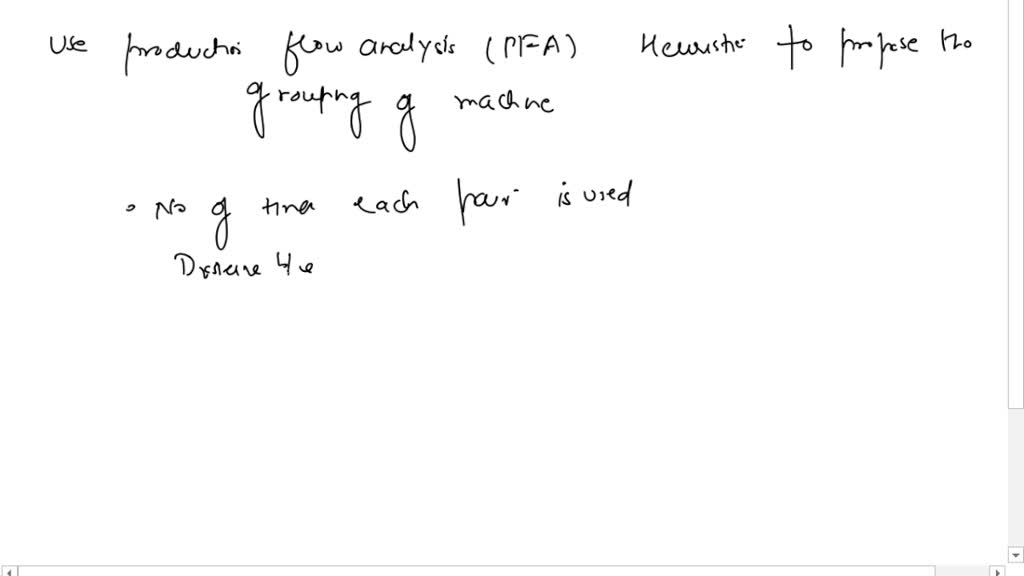 Use production flow analysis (PFA) Heuristic to propose the
grouping of machine
• No of times each pair is used